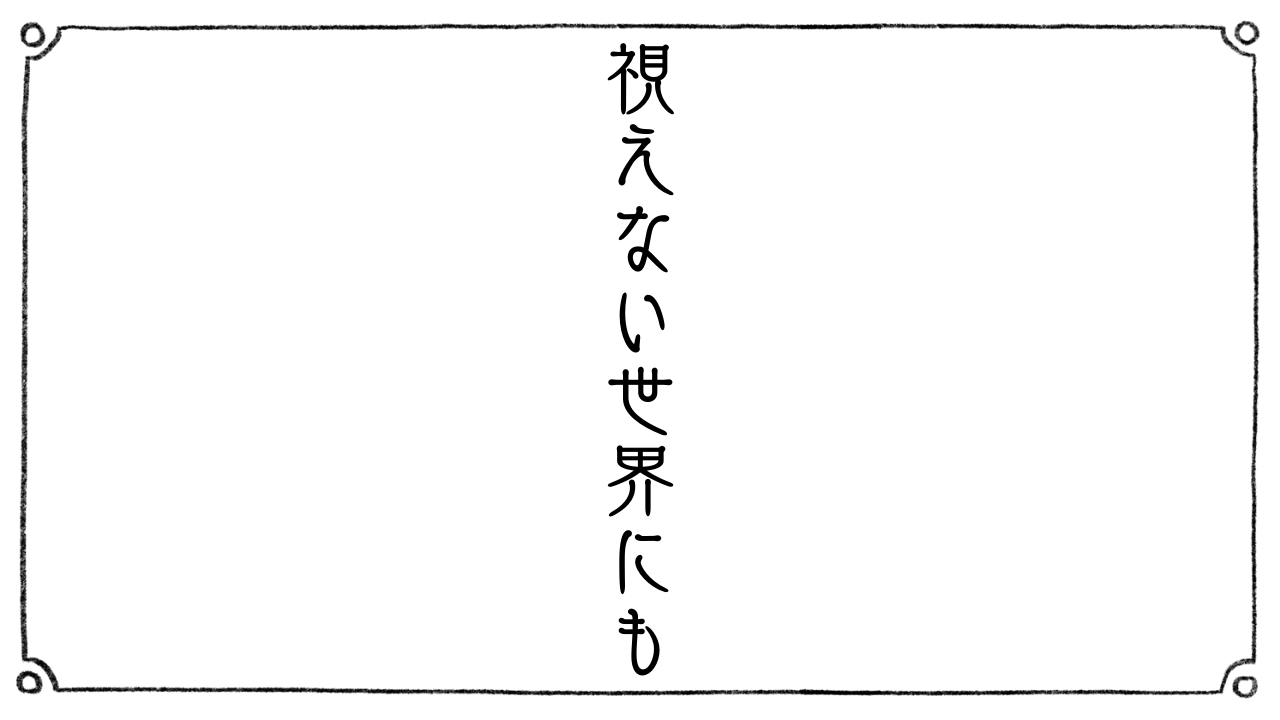 視えない世界にも